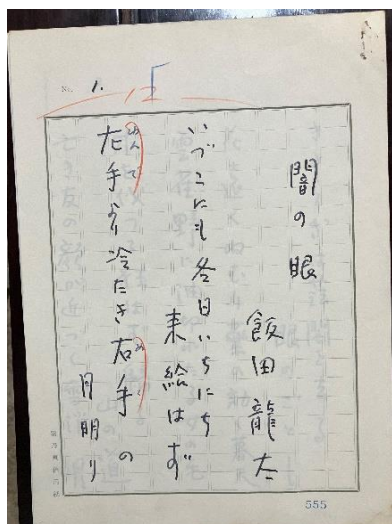 No. 1.
闇の眼
飯田龍太
いづこにも冬日いちにち
来給はず
左手より冷たき右手の
ゆんで
月明り
555